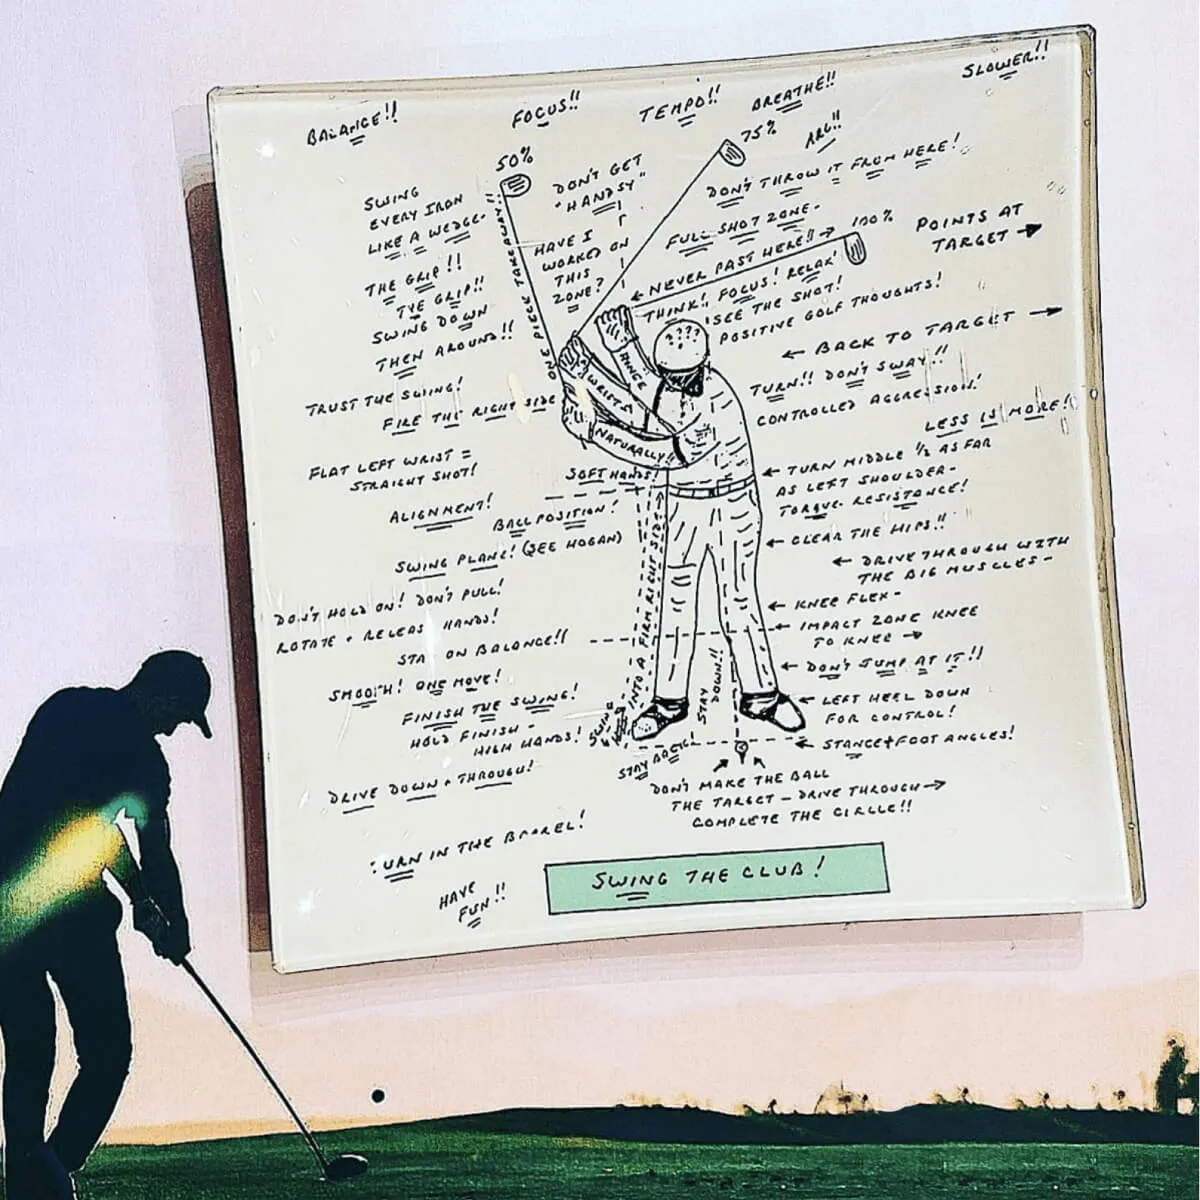 BALANCE!!
FOCUS!!
TEMPO!!
BREATHE!!
SLOWER!!
50%
75%
ARG!!
SWING
EVERY IRON
LIKE A WEDGE-
DON'T GET
"HANDSY"
DON'T THROW IT FROM HERE!
FULL SHOT ZONE-
100%
POINTS AT
TARGET
THE GRIP!!
HAVE I
WORKED ON
THIS
ZONE?
NEVER PAST HERE!!
THINK! FOCUS! RELAX!
SEE THE SHOT!
POSITIVE GOLF THOUGHTS!
ONE PIECE TAKEAWAY!!
TYE GRIP!!
SWING DOWN
THEN AROUND!!
????
HINGE
WRISTS
NATURALLY!!
BACK TO TARGET
TURN!! DON'T SWAY!!
CONTROLLED AGGRESSION!
LESS IS MORE!
TRUST THE SWING!
FIRE THE RIGHT SIDE
FLAT LEFT WRIST =
STRAIGHT SHOT!
SOFT HANDS!
TURN MIDDLE 1/2 AS FAR
AS LEFT SHOULDER-
TORQUE-RESISTANCE!
ALIGNMENT!
BALL POSITION!
SWING PLANE! (SEE HOGAN)
CLEAR THE HIPS!!
DRIVE THROUGH WITH
THE BIG MUSCLES-
DON'T HOLD ON! DON'T PULL!
ROTATE + RELEAS HANDS!
KNEE FLEX-
IMPACT ZONE KNEE
TO KNEE
STA ON BALANCE!!
DON'T JUMP AT IT!!
SMOOTH! ONE MOVE!
INTO A FIRM RIGHT SIDE!
STAY
DOWN!!
LEFT HEEL DOWN
FOR CONTROL!
FINISH THE SWING!
HOLD FINISH -
HIGH HANDS!
SWING
STAY BACK
STANCE + FOOT ANGLES!
DRIVE DOWN + THROUGH!
DON'T MAKE THE BALL
THE TARGET - DRIVE THROUGH
COMPLETE THE CIRCLE!!
URN IN THE BARREL!
HAVE
FUN!!
SWING THE CLUB!